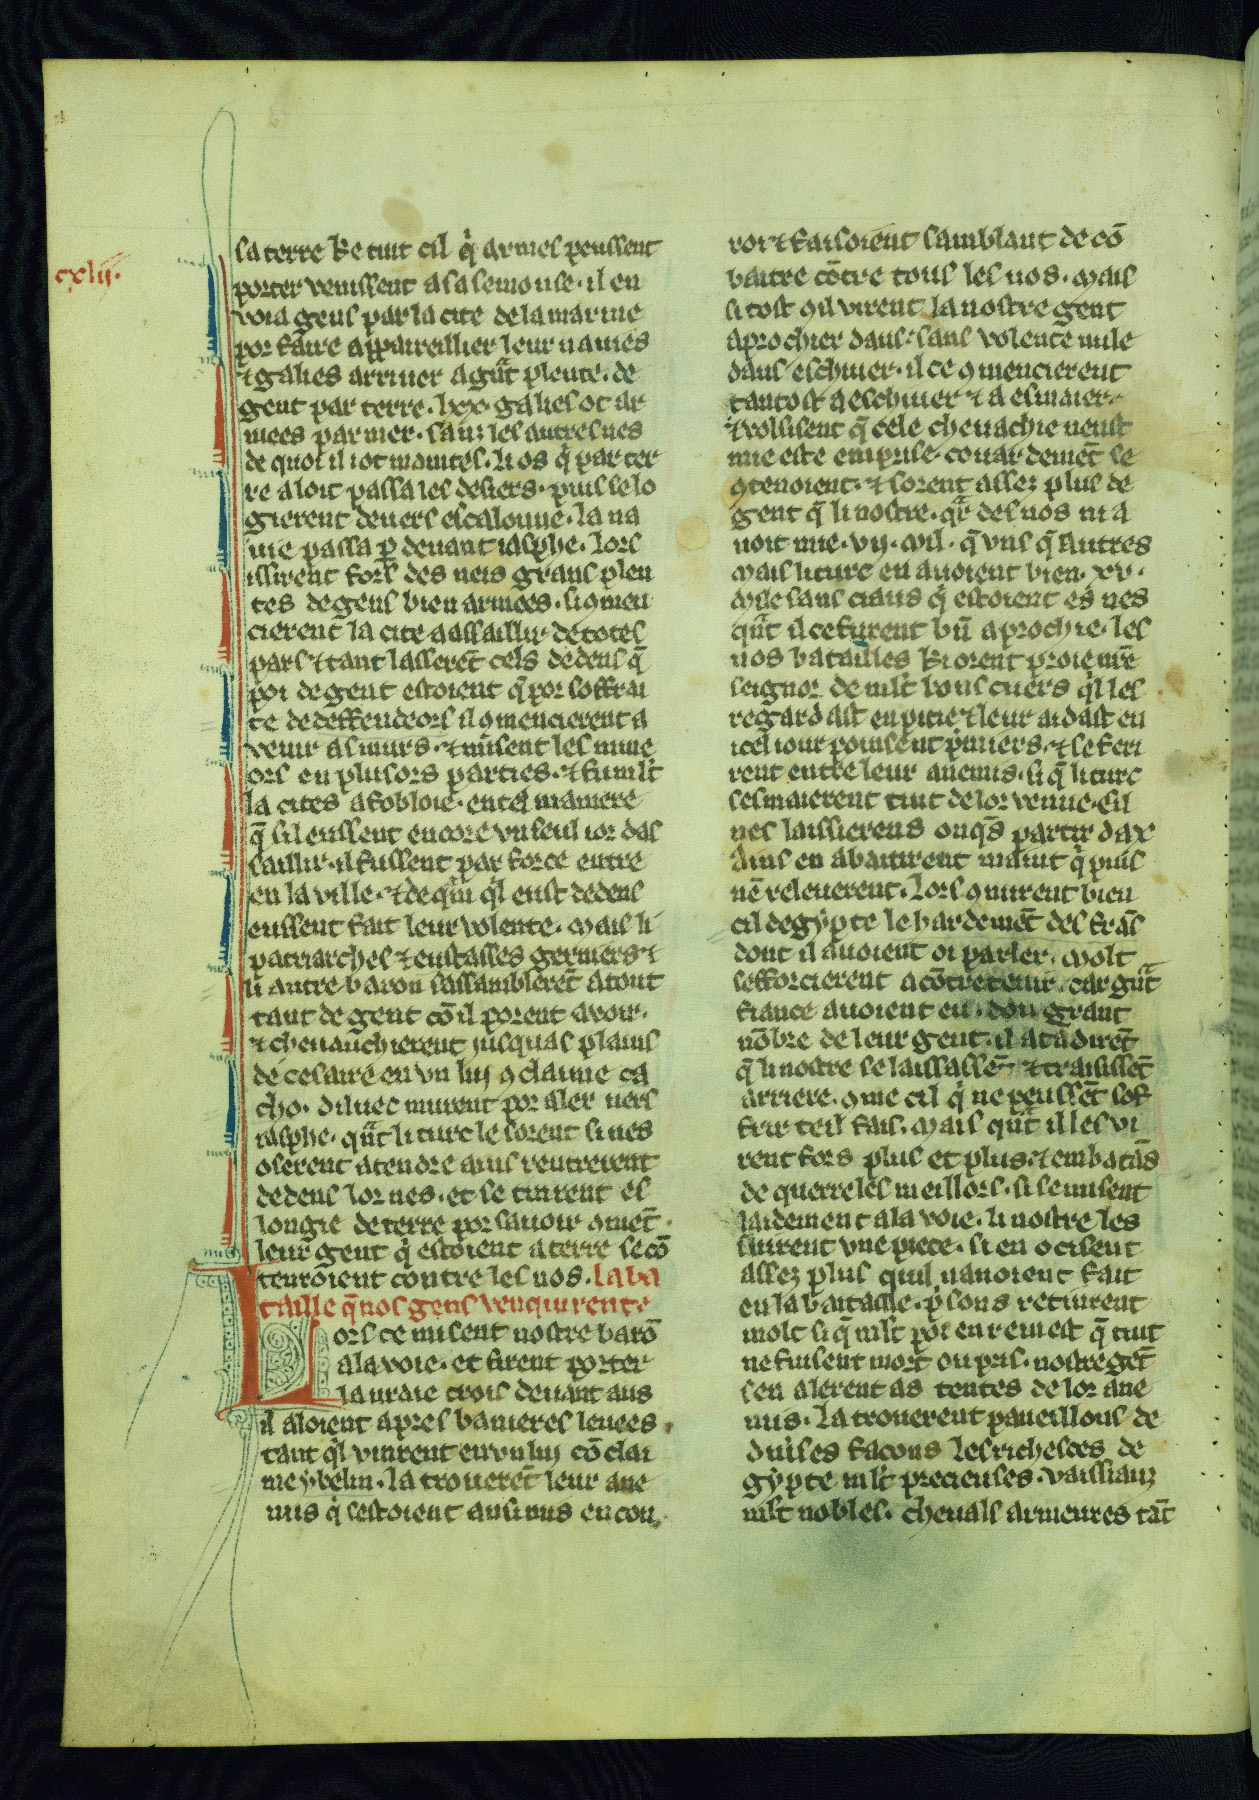 cxlij.
sa terre ke tuit cil q̇ armes peussent
porter venissent a sa semonse. il en
voia gens par la cite de la marine
por faire appareillier leur navies
⁊ galies arriver a gr̃t plente. de
gent par terre. lxx. galies ot ar
mees par mer. sanz les autres nes
de quoi il i ot maintes. li os q̇ par ter
re aloit passa les desers. puis se lo
gierent devers escalonne. la na
vie passa p̱ devant iasphe. lors
issirent fors des neis grans plen
tes de gens bien armees. si ꝯmen
cierent la cite a assaillir de totes
pars ⁊ tant lasserẽt cels dedens q̃
poi de gent estoient q̃ por soffrai
te de deffendeors il ꝯmencierent a
venir as murs. ⁊ misent les mine
ors en plusors parties. ⁊ fu ml̃t
la cites afobloie. en tel maniere
q̃ sil eussent encore vn seul ior das
saillir. il fussent par force entre
en la ville. ⁊ de q̃m q̇l eust dedens
eussent fait leur volente. mais li
patriarches ⁊ eustasses gerniers ⁊
li autre baron sassamblerẽt a tout
tant de gent cõ il porent avoir.
⁊ chevauchierent iusquas plains
de cesaire en vn liu ꝯ claime ca
cho. diluec murent por aler vers
iasphe. qñt li turc le sorent si nes
oserent atendre ains rentrerent
dedens lor nes. et se tinrent es
longie de terre por savoir ꝯmẽt
leur gent q̇ estoient a terre se cõ
tenroient contre les nos. la ba
taille q̃ nos gens venquirent e
Lors ce misent nostre barõ
a la voie. et firent porter
la vraie crois devant aus
il aloient apres banieres levees
tant q̇l vinrent en vn liu cõ clai
me ybelin. la troverẽt leur ane
mis q̇ sestoient ausi mis en con
roi ⁊ faisoient samblant de cõ
batre cõtre tous les nos. mais
si tost ꝯil virent la nostre gent
aprochier daus. sans volente nule
daus eschiver. il ce ꝯmencierent
tantost a eschiver ⁊ a esmaier.
⁊ volsisent q̃ cele chevachie neust
mie este emprise. couardemẽt se
ꝯtenoient. ⁊ sorent assez plus de
gent q̃ li nostre. qr̃ des nos ni a
voit mie. vij. mil. q̃ vns q̃ autres
mais li turc en avoient bien. xv.
mile sans ciaus q̇ estoient es nes
qñt il ce furent bñ aprochie. les
nos batailles ki orent proie nr̃e
seignor de ml̃t bons cuers q̇l les
regardast en pitie ⁊ leur aidast en
icel iour poinsent p̱miers. ⁊ se feri
rent entre leur anemis. si q̃ li turc
sesmaierent tuit de lor venue. cil
nes laissierens onqs̃ partir dax
Ains en abatirent maint q̇ puis
nẽ releverent. lors ꝯnurent bien
cil degypte le hardemẽt des frãs
dont il avoient oi parler. molt
sefforcierent a cõtretenir. car gr̃t
fiance avoient en. dou grant
nõbre de leur gent. il atadirẽt
q̃ li nostre se laissassẽt ⁊ traisissẽt
arriere. ꝯme cil q̇ ne peussẽt sof
frir teil fais. mais qñt il les vi
rent fors plus et plus. ⁊ embatãs
de querre les meillors. si se misent
laidement a la voie. li nostre les
sivirent vne piece. si en ocisent
assez plus quil navoient fait
en la bataille. p̱sons retinrent
molt si q̃ ml̃t poi en remest q̃ tuit
ne fuisent mort ou pris. nostre gẽt
sen alerent as tentes de lor ane
mis. la troverent paveillons de
divises facons les richesces de
gypte ml̃t precieuses. vaissiauz
ml̃t nobles. chevals armeures tãt